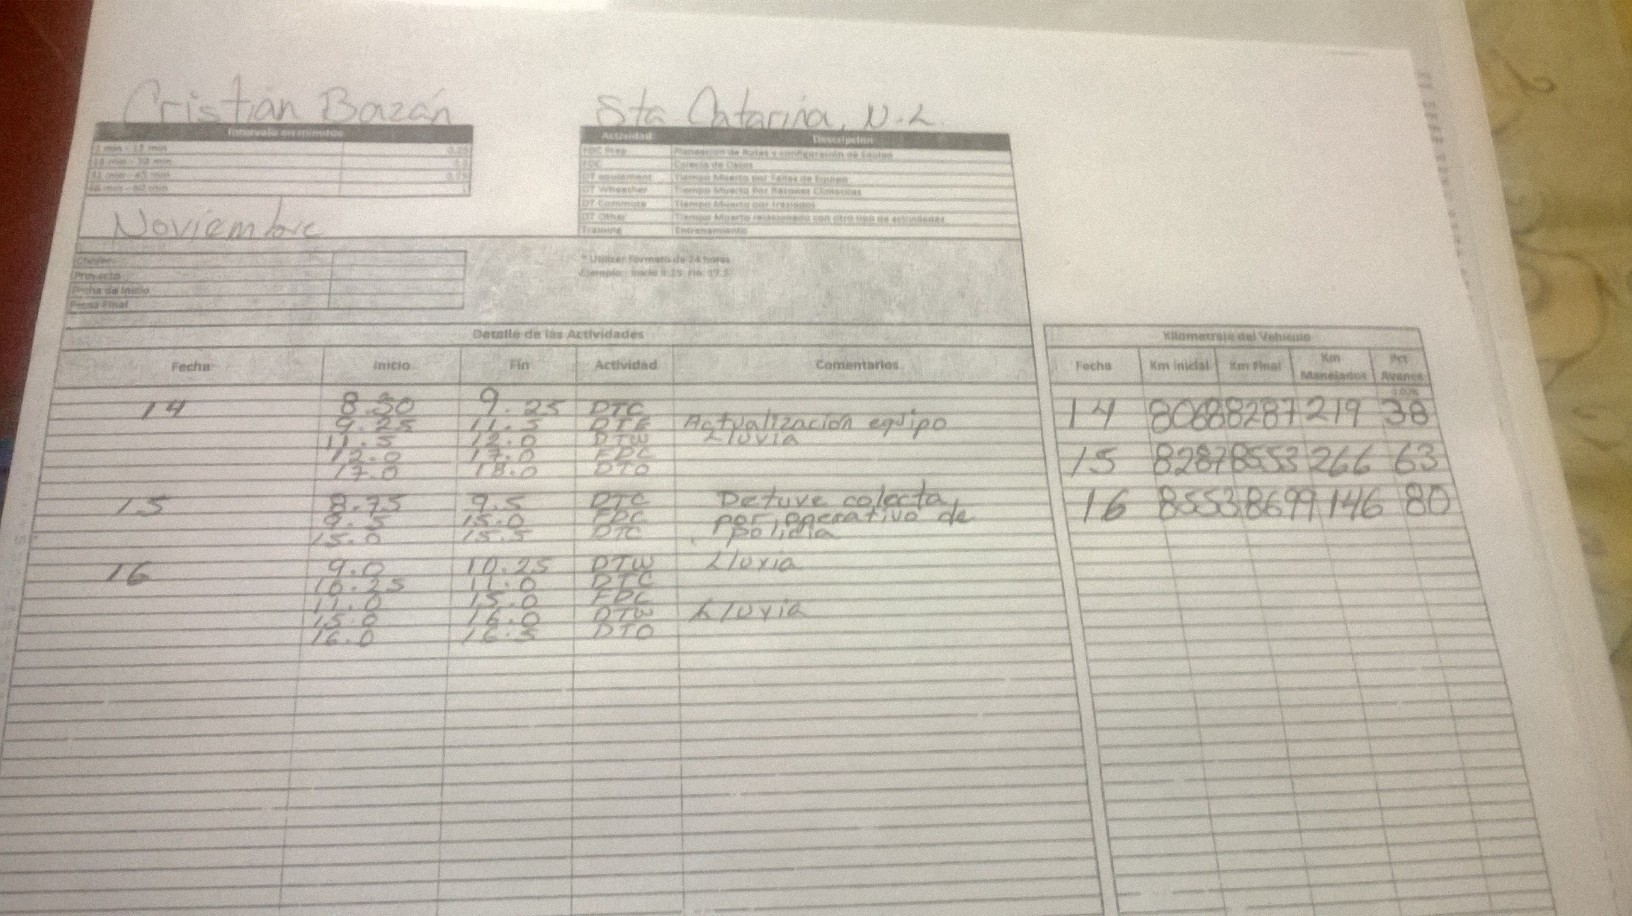 Cristian Bazán
Sta Catarina, N.L.
Intervalo en minutos
Actividad Descripcion
FDC Prep Planeacion de Rutas y configuración de Equipo
FDC Colecta de Datos
DT equipment Tiempo Muerto por Fallas de Equipo
DT Wheather Tiempo Muerto Por Razones Climaticas
DT Commute Tiempo Muerto por traslados
DT Other Tiempo Muerto relacionado con otro tipo de actividades
Training Entrenamiento
Noviembre
Proyecto
Fecha de Inicio
Fecha Final
* Utilizar Formato de 24 horas
Detalle de las Actividades
Fecha Inicio Fin Actividad Comentarios
14 8.50 9.25 DTC
9.25 11.5 DTE Actualización equipo
11.5 12.0 DTW Lluvia
12.0 17.0 FDC
17.0 18.0 DTO
15 8.75 9.5 DTC Detuve colecta
9.5 15.0 FDC por operativo de
15.0 15.5 DTC policia
16 9.0 10.25 DTW Lluvia
10.25 11.0 DTC
11.0 15.0 FDC
15.0 16.0 DTW Lluvia
16.0 16.5 DTO
Kilometraje del Vehiculo
Fecha Km inicial Km Final Km Manejados Pct Avance
14 8068 8287 219 38
15 8287 8553 266 63
16 8553 8699 146 80